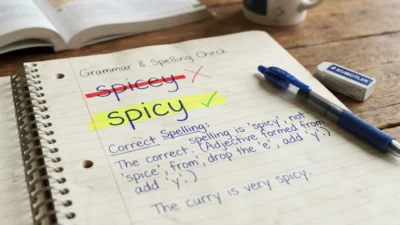 Grammar & Spelling Check
spicey ✗
spicy ✓
Correct Spelling:
spelling is 'spicy', not
The correct. (Adjective formed from
'spice', from', drop the 'e', add 'y'.)
add 'y'.)
The curry is very spicy.
STAEDTLER